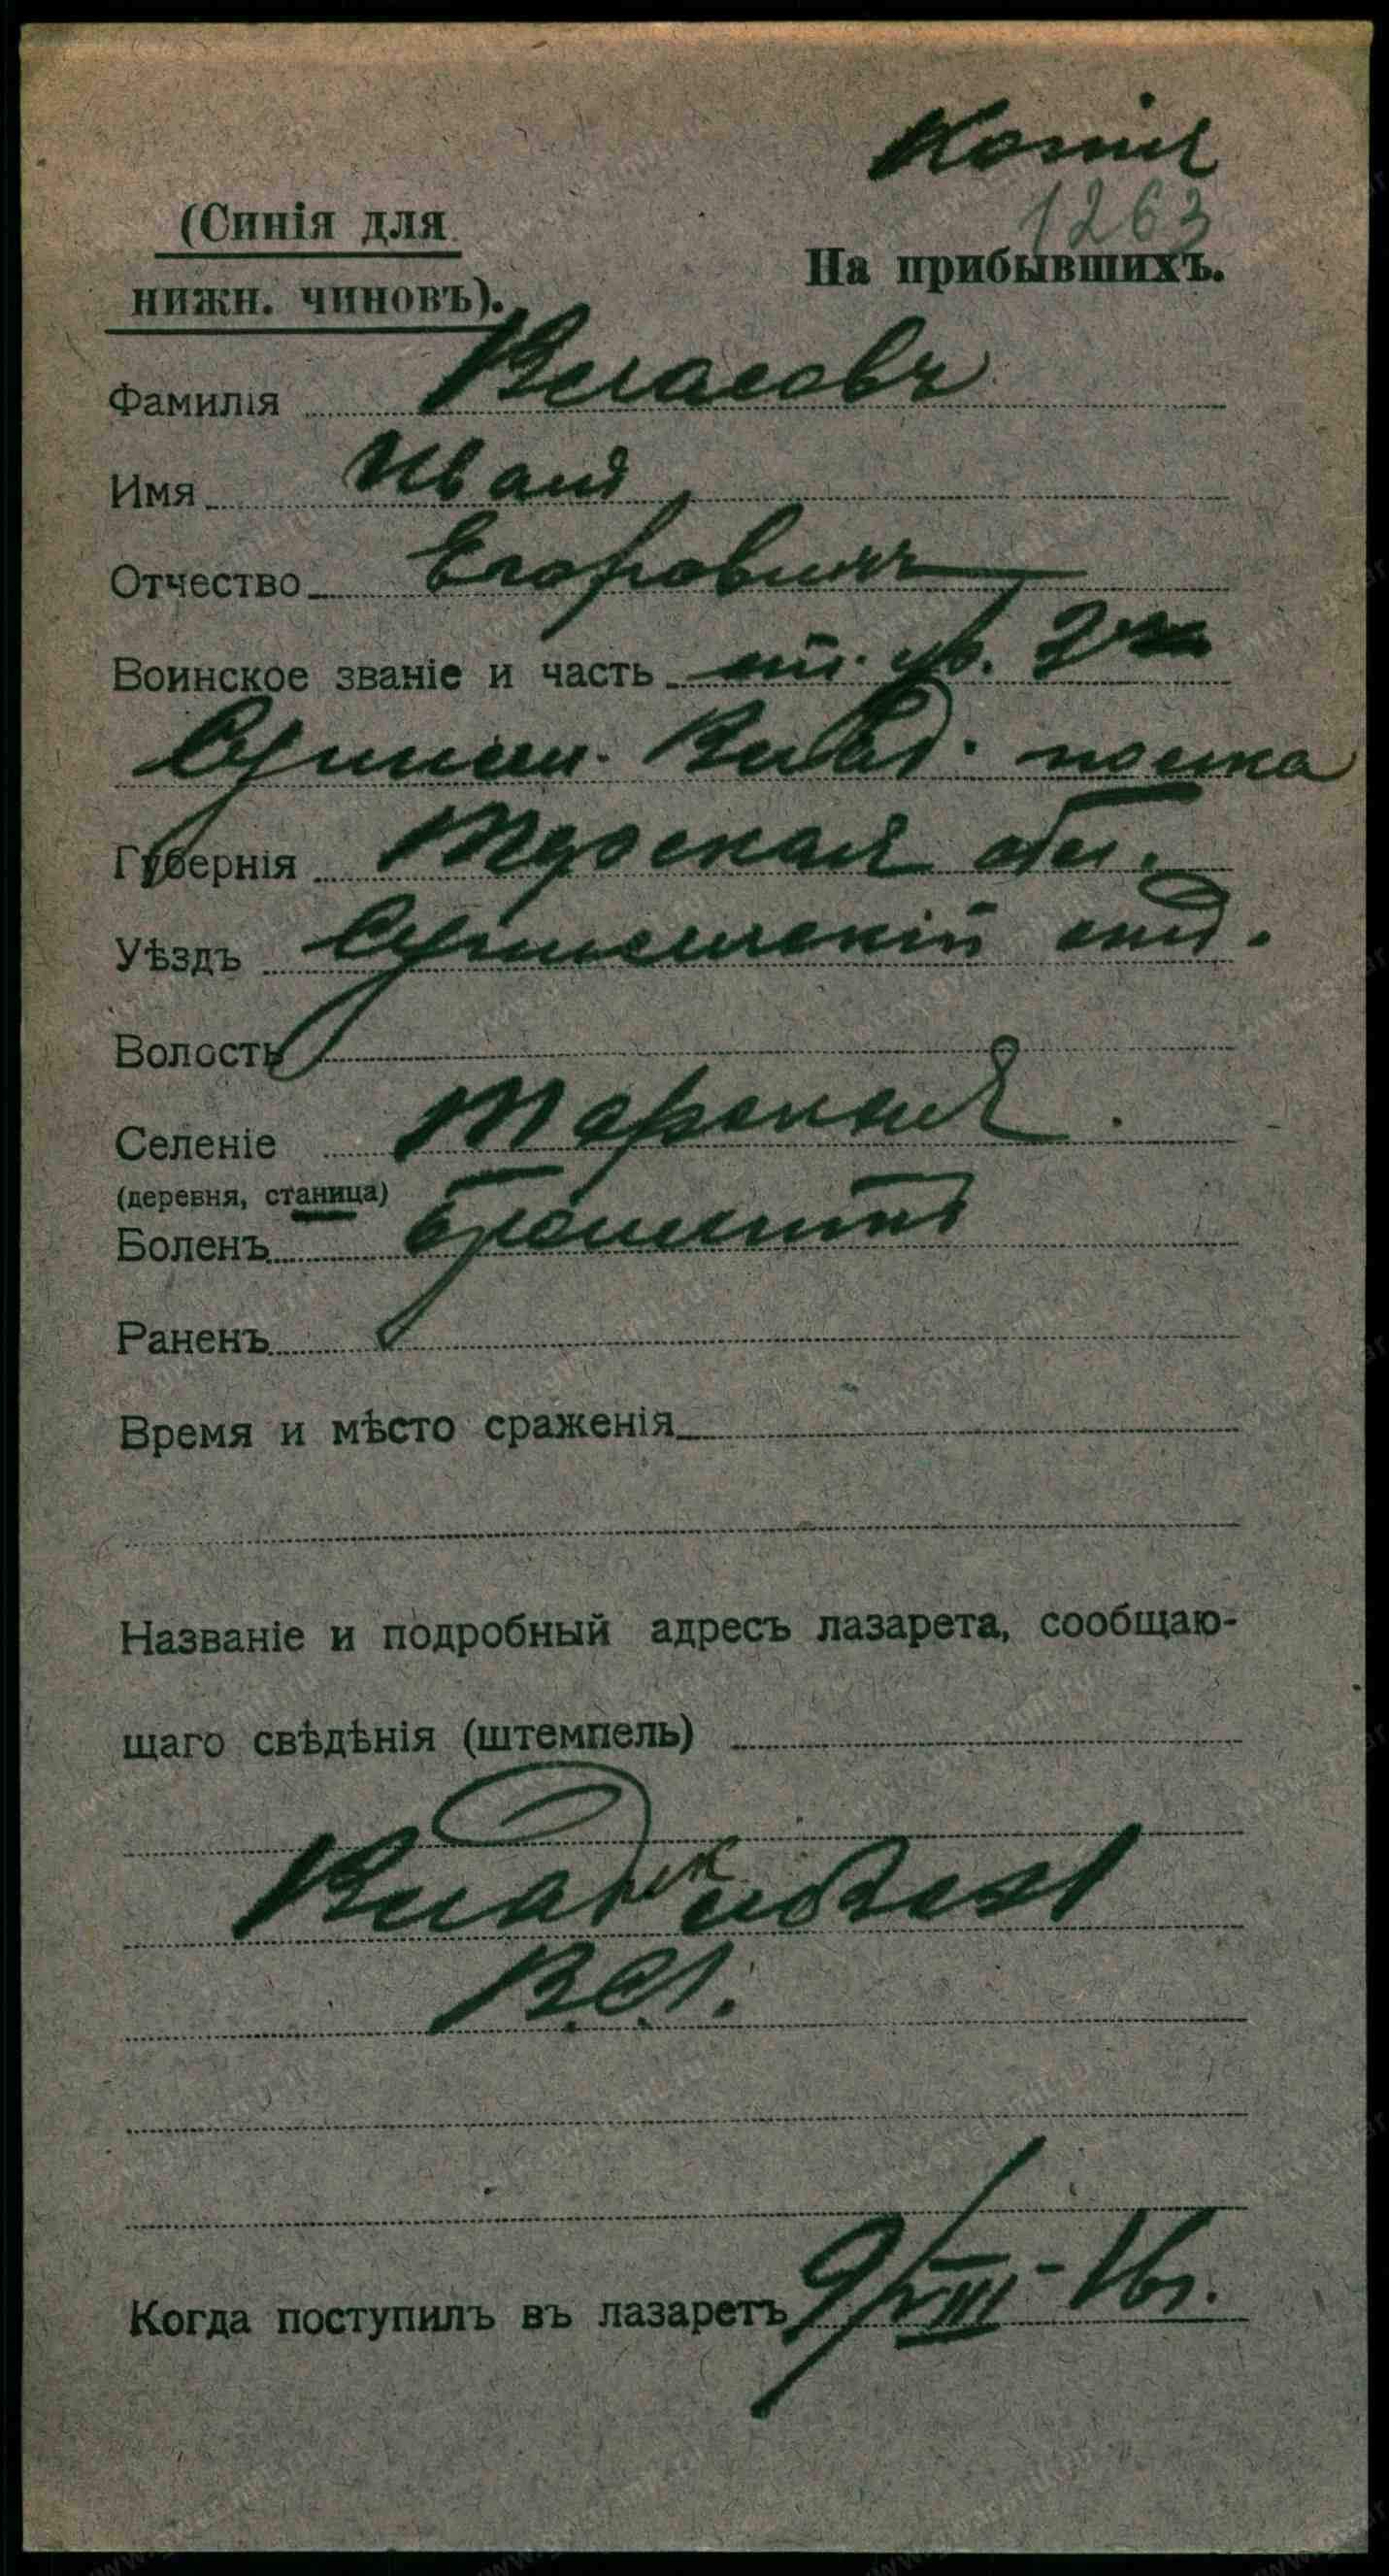 Копія
1263
(Синія для
нижн. чиновъ).
На прибывшихъ.
Фамилія Власовъ
Имя Иванъ
Отчество Егоровичъ
Воинское званіе и часть ст. ур. 2го
Сунжен. Влад. полка
Губернія Терская обл.
Уѣздъ Сунженскій отд.
Волость
Селеніе Терская
(деревня, станица)
Боленъ Бронхитъ
Раненъ
Время и мѣсто сраженія
Названіе и подробный адресъ лазарета, сообщаю-
щаго свѣдѣнія (штемпель)
Влад
В.Г.
Когда поступилъ въ лазаретъ 9/VIII-16г.